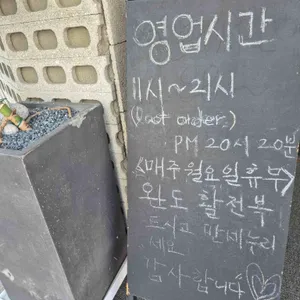 영업시간
11시~21시
(Last order.)
PM 20시 20분
<매주월요일휴무>
완도 활전복
드시고 만세누리
세요
감사합니다